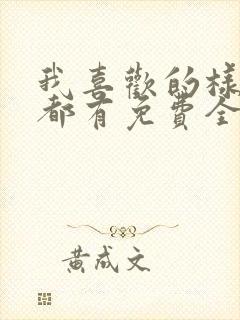 我喜歡的樣
都有免費全
黃成文